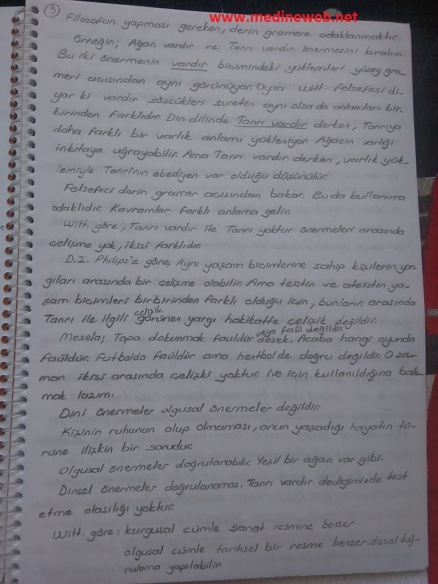 www.medineweb.net
3
Filozofun yapması gereken, derin gramere odaklanmaktır.
Örneğin; Ağaç vardır ve Tanrı vardır önermesini kıralım.
Bu iki önermenin vardır biçimindeki yüklemleri yüzey gra-
meri açısından aynı görünüyor. Oysa Witt. Felsefesi di-
yor ki vardır sözcükleri sureten aynı olsa da anlamları bir-
birinden farklıdır. Din dilinde Tanrı vardır derken, Tanrıya
daha farklı bir varlık anlamı yükleniyor. Ağacın varlığı
inkıtaya uğrayabilir. Ama Tanrı vardır derken, varlık yük-
lemiyle Tanrı'nın ebediyen var olduğu düşünülür.
Felsefeci derin gramer açısından bakar. Bu da kullanıma
odaklıdır. Kavramlar farklı anlama gelir.
Witt. göre, Tanrı vardır ile Tanrı yoktur önermeleri arasında
çelişme yok, ikisi farklıdır.
D.Z. Philips'e göre, Aynı yaşam biçimlerine sahip kişilerin yar-
gıları arasında bir çelişme olabilir. Ama teistin ve ateistin ya-
şam biçimleri birbirinden farklı olduğu için, bunların arasında
Tanrı ile ilgili çelişik görünen yargı hakikatte çelişik değildir.
Mesela; Topa dokunmak fauldür veya faul değildir desek. Acaba hangi oyunda
faüldür. Futbolda faüldür ama hentbolde doğru değildir. O za-
man ikisi arasında çelişki yoktur. Ne için kullanıldığına bak-
mak lazım.
Dini önermeler olgusal önermeler değildir.
Kişinin ruhunun olup olmaması, onun yaşadığı hayatın tü-
rüne ilişkin bir sorudur.
Olgusal önermeler doğrulanabilir. Yeşil bir ağaç var gibi.
Dinsel önermeler doğrulanamaz. Tanrı vardır dediğimizde test
etme olasılığı yoktur.
Witt. göre: kurgusal cümle sanat resmine benzer
olgusal cümle tarihsel bir resme benzer. dışsal doğ-
rulama yapılabilir